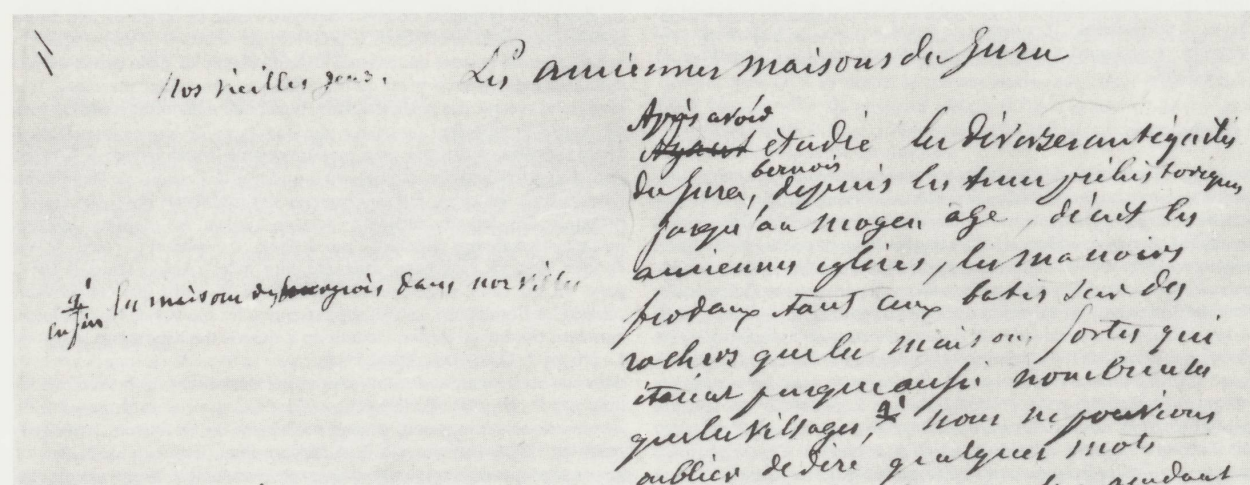 Nos vieilles gens.
Les anciennes maisons du Jura
Après avoir
Ayant étudié les diverses antiquités
bernois
du Jura, depuis les tems préhistoriques
jusqu'au moyen âge, décrit les
anciennes églises, les manoirs
féodaux tant ceux batis sur des
rochers que les maisons fortes qui
étaient presque aussi nombreuses
que les villages, nous ne pouvions
oublier de dire quelques mots
pendant
enfin les maisons des bourgeois dans nos villes